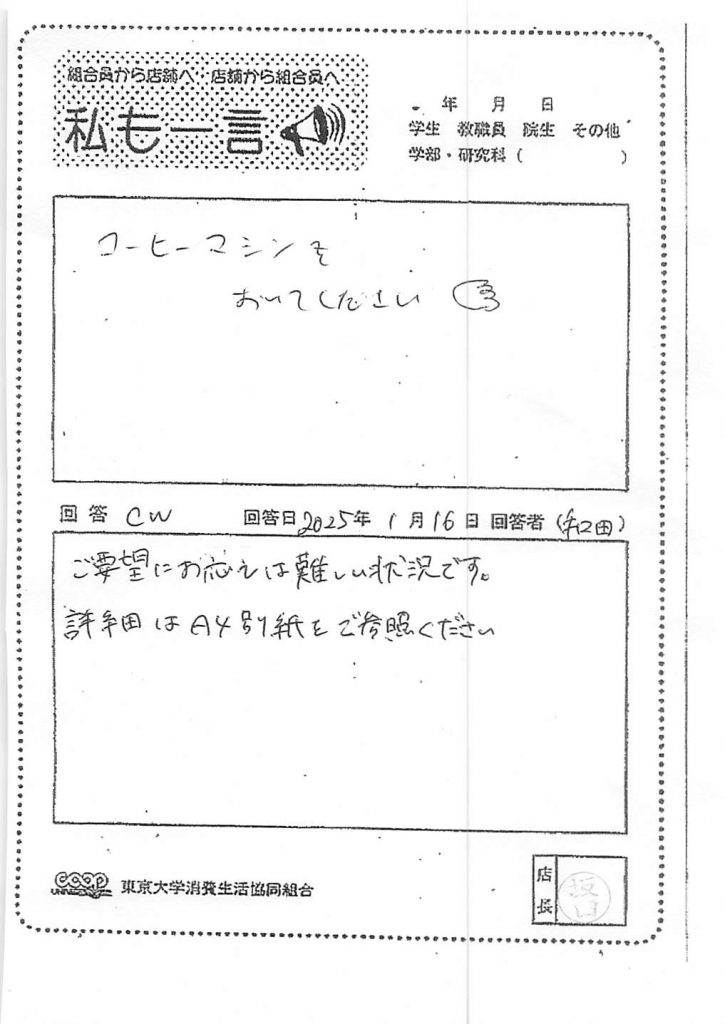 組合員から店舗へ 店舗から組合員へ
私も一言
年 月 日
学生 教職員 院生 その他
学部・研究科 ( )
コーヒーマシンを
おいてください
回答 CW 回答日 2025年 1月16日 回答者 (和田)
ご要望にお応えは難しい状況です。
詳細はA4別紙をご参照ください
coop
東京大学消費生活協同組合
店長